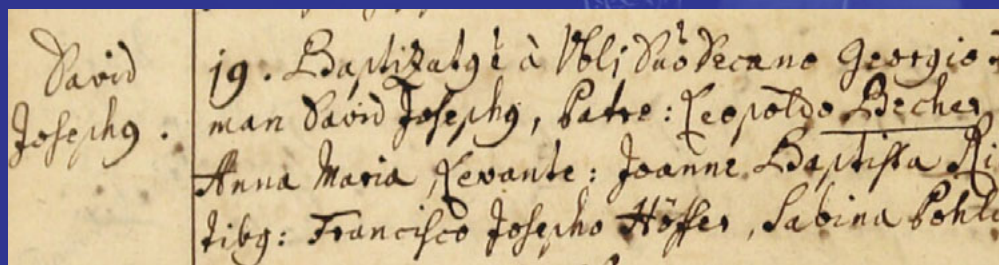 David
Josephg.
19. Baptizatg è à Vbli Dnõ Decano Georgio
man David Josephg, Patre: Leopoldo Becher
Anna Maria, Levante: Joanne Baptista Ri
tibg: Francisco Josepho Höffer, Sabina Pohl